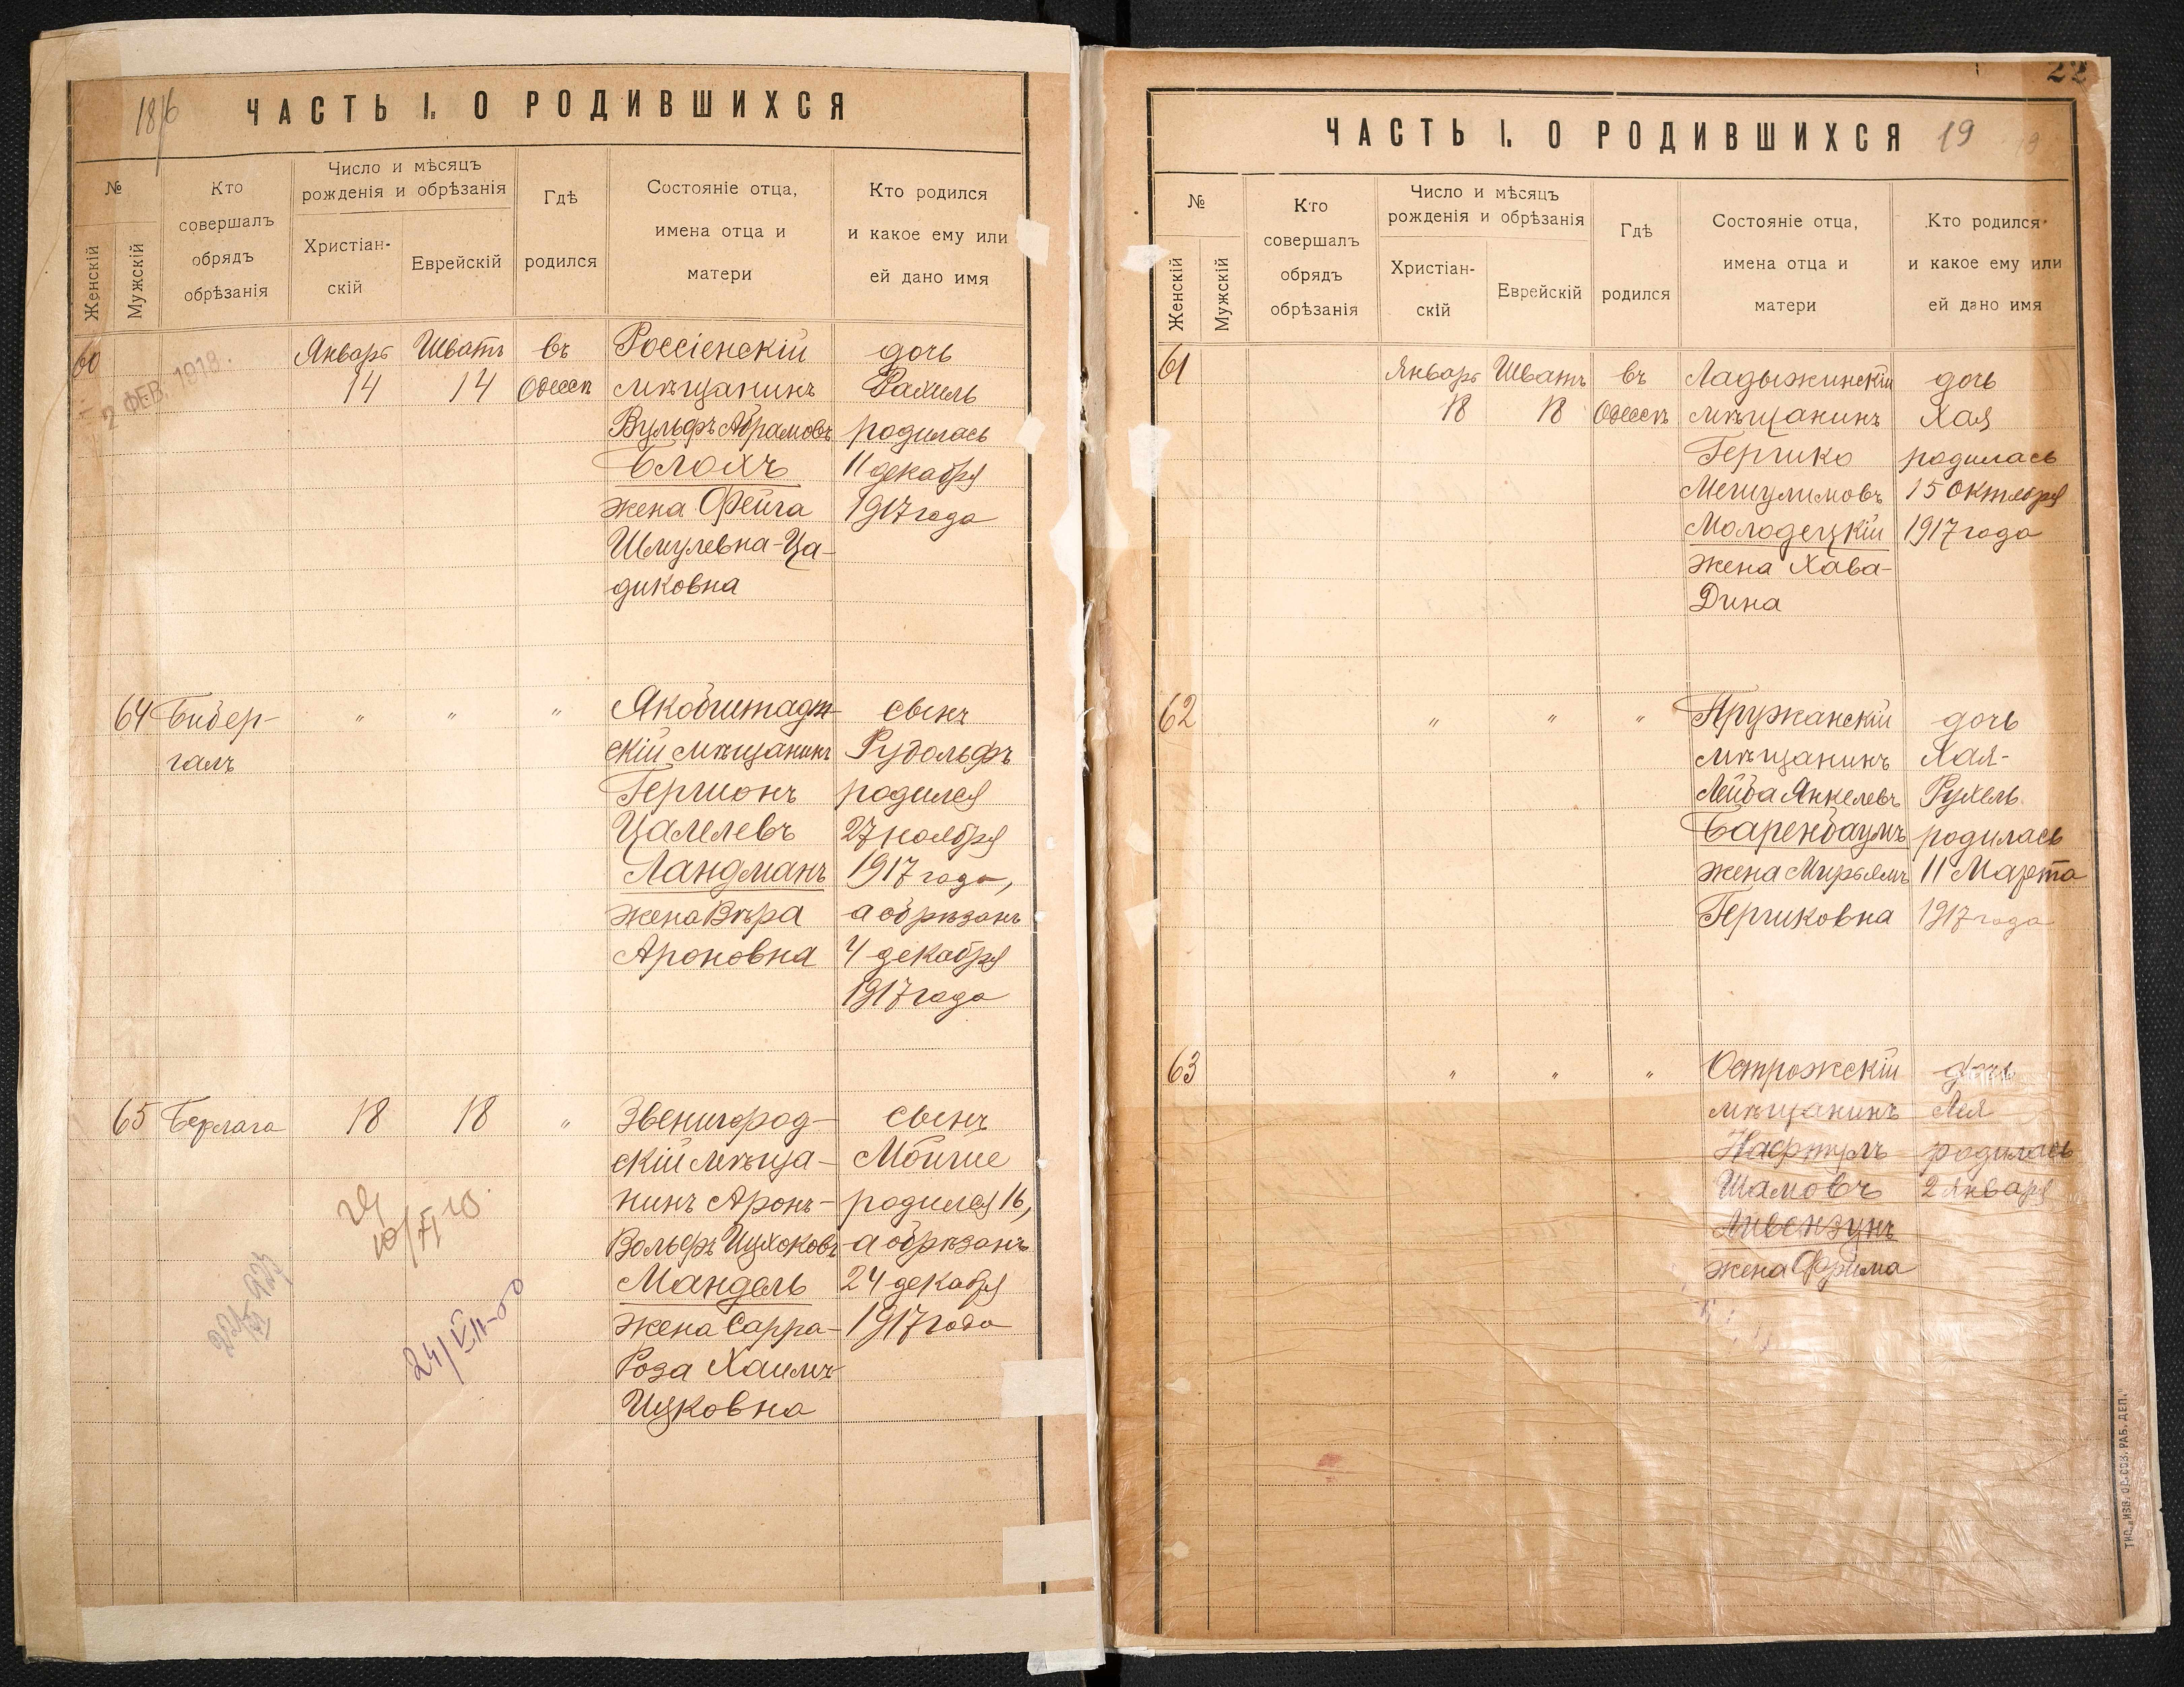 18/6
ЧАСТЬ I. О РОДИВШИХСЯ
№
Женскій
Мужскій
Кто
совершалъ
обрядъ
обрѣзанія
Число и мѣсяцъ
рожденія и обрѣзанія
Христіан-
скій
Еврейскій
Гдѣ
родился
Состояніе отца,
имена отца и
матери
Кто родился
и какое ему или
ей дано имя
60
2 ФЕВ. 1918.
Январь
14
Шватъ
14
въ
Одессѣ
Россіенскій
мѣщанинъ
Вульфъ Абрамовъ
Блохъ
жена Фейга
Шмулевна-Ца-
диковна
дочь
Рахиль
родилась
11 декабря
1917 года
64
Бибер-
галъ
"
"
"
Якобштадт-
скій мѣщанинъ
Гершонъ
Цалелевъ
Ландманъ
жена Вѣра
Ароновна
сынъ
Рудольфъ
родился
27 ноября
1917 года,
а обрѣзанъ
4 декабря
1917 года
65
Берлага
18
18
"
Звенигород-
скій мѣща-
нинъ Аронъ-
Вольфъ Ицхоковъ
Мандель
жена Сарра-
Роза Хаимъ-
Ицковна
сынъ
Мойше
родился 16,
а обрѣзанъ
24 декабря
1917 года
24/VII-00
22
ЧАСТЬ I. О РОДИВШИХСЯ
19
№
Женскій
Мужскій
Кто
совершалъ
обрядъ
обрѣзанія
Число и мѣсяцъ
рожденія и обрѣзанія
Христіан-
скій
Еврейскій
Гдѣ
родился
Состояніе отца,
имена отца и
матери
Кто родился
и какое ему или
ей дано имя
61
Январь
18
Шватъ
18
въ
Одессѣ
Ладыжинскій
мѣщанинъ
Гершко
Мешулимовъ
Молодецкій
жена Хава-
Дина
дочь
Хая
родилась
15 Октября
1917 года
62
"
"
"
Пружанскій
мѣщанинъ
Лейба Янкелевъ
Баренбаумъ
жена Мирьямъ
Гершковна
дочь
Хая-
Рухель
родилась
11 Марта
1917 года
63
"
"
"
Острожскій
мѣщанинъ
Нафтулъ
Шамовъ
Ливензунъ
жена Фрима
дочь
Лея
родилась
2 января
ТИП. „ИЗВ. ОД. СОВ. РАБ. ДЕП."